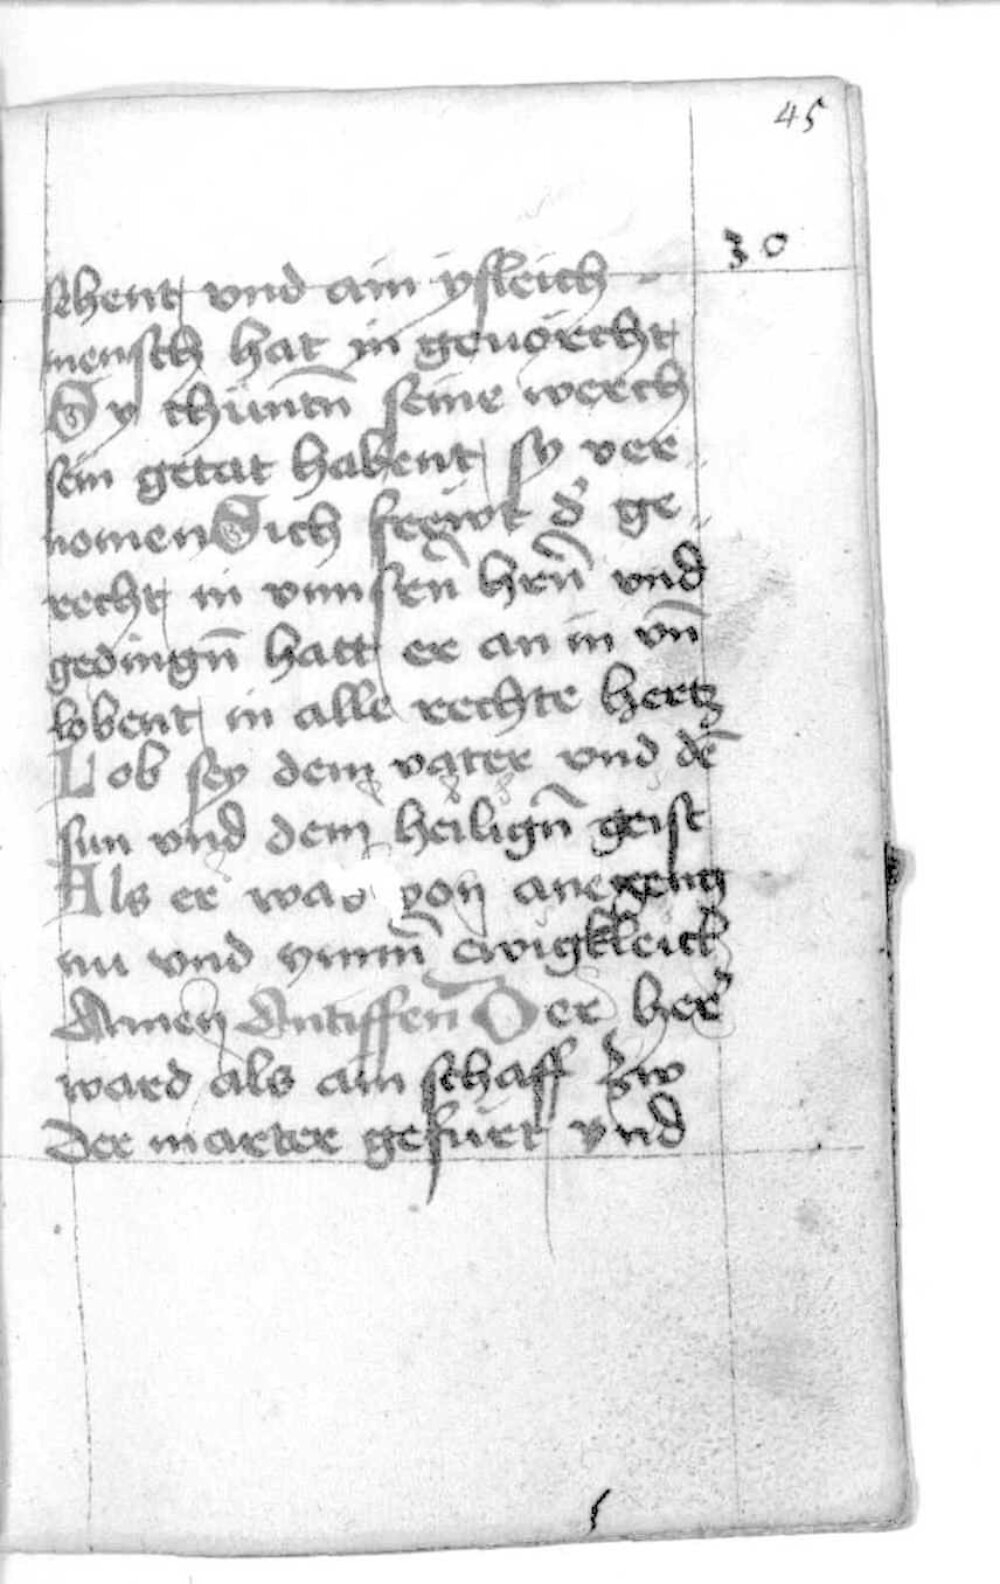 45
30
sehent vnd ain ysleich
mensch hat in gevörcht
Sy chünten̄ seine werch
sein getat habent sy ver
nomen Sich frewt d' ge
recht in vnnsen̄ hern̄ vnd
gedingn̄ hatt er an in vn̄
lobent in alle rechte hertz
Lob sey dem vater vnd dē
sun vnd dem heilign̄ geist
Als er was von anegeng
nu vnd ymm̄ ewigkleich
Amen Antiffen̄ Der her'
ward als ain schaff zw
Der marter gefürt vnd